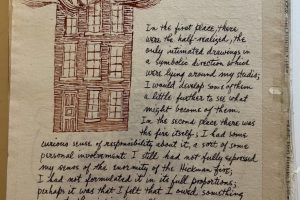 In the first place, there
were the half-realized, the
only intimated drawings in
a symbolic direction which
were lying around my studio;
I would develop some of them
a little further to see what
might become of them.
In the second place there was
the fire itself; I had some
curious sense of responsibility about it, a sort of some
personal involvement. I still had not fully expressed
my sense of the enormity of the Hickman fire;
I had not formulated it in its full proportions;
perhaps it was that I felt that I owed something